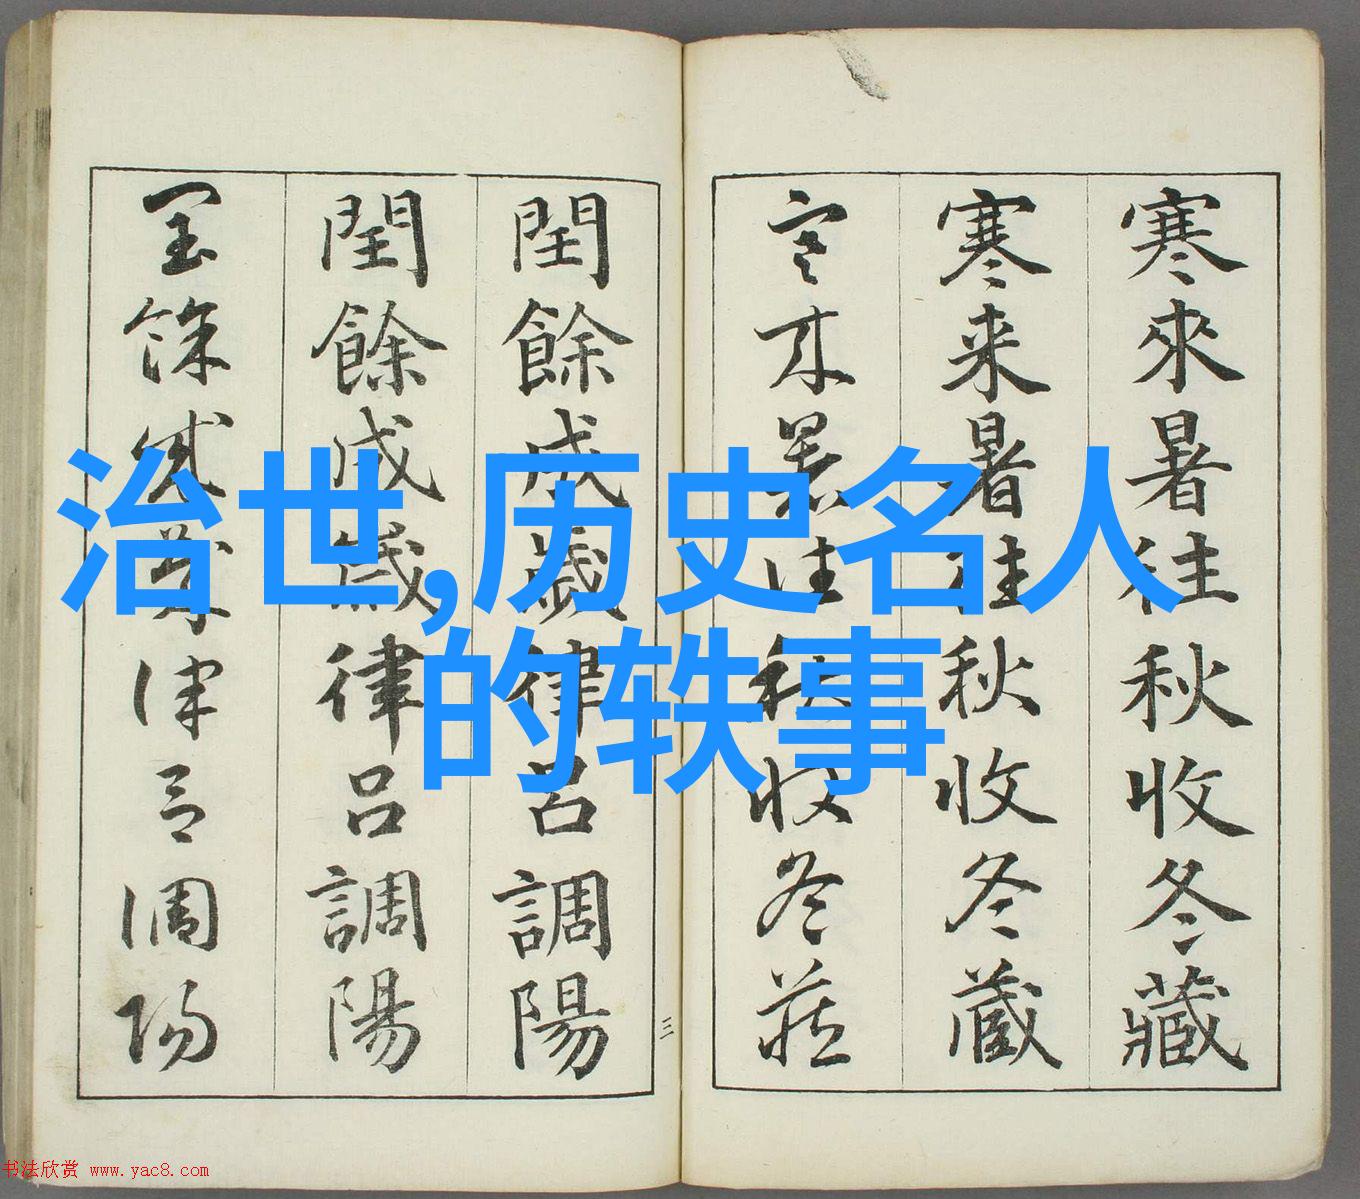 治世,历史名人
的轶事
寒來暑往秋收冬藏
寒来暑往秋收冬蔵
寒来暑往秋收冬藏
閏餘成歲律吕調陽
閏餘成歲律吕調陽
閏餘成歲律吕調陽
三
书法欣赏 www.yac8.com